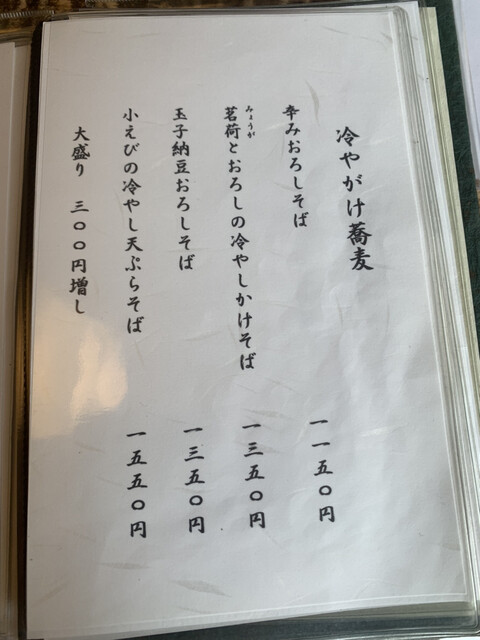 冷やがけ蕎麦
辛みおろしそば 一一五〇円
みょうが
茗荷とおろしの冷やしかけそば 一三五〇円
玉子納豆おろしそば 一三五〇円
小えびの冷やし天ぷらそば 一五五〇円
大盛り 三〇〇円増し